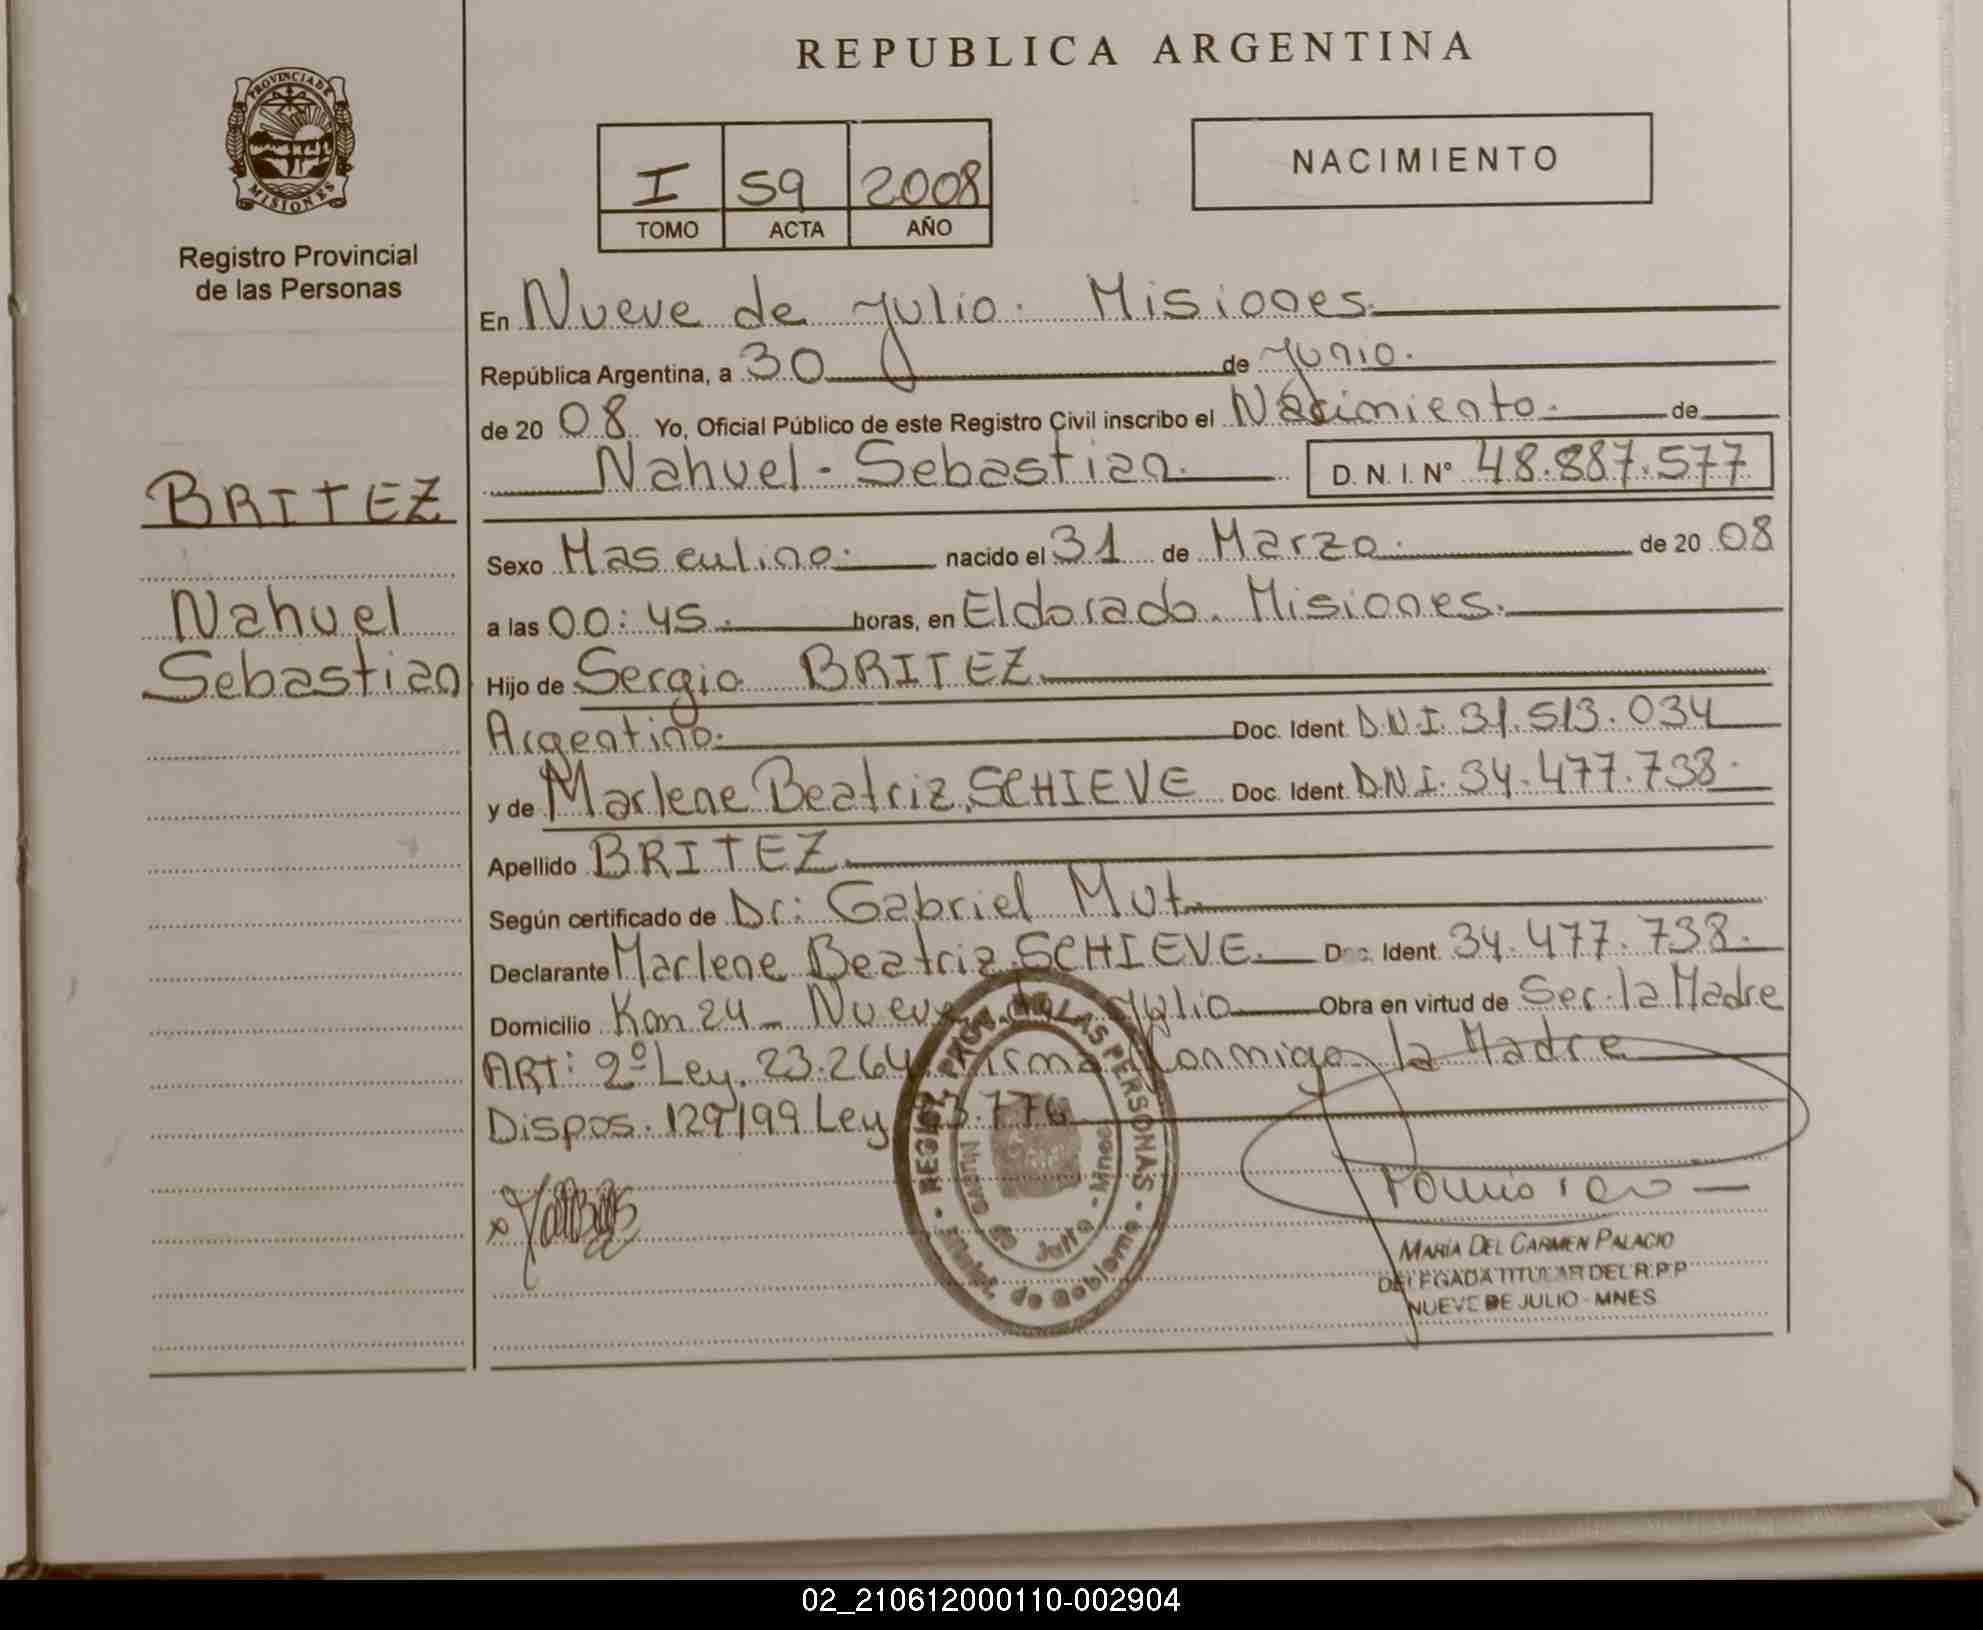 REPUBLICA ARGENTINA
PROVINCIA DE
MISIONES
Registro Provincial
de las Personas
I 59 2008
TOMO ACTA AÑO
NACIMIENTO
En Nueve de Julio. Misiones.
República Argentina, a 30 de Junio.
de 20 08 Yo, Oficial Público de este Registro Civil inscribo el Nacimiento. de
Nahuel - Sebastian. D. N. I. N° 48.887.577
BRITEZ
Nahuel
Sebastian
Sexo Masculino. nacido el 31 de Marzo. de 20 08
a las 00:45. horas, en Eldorado. Misiones.
Hijo de Sergio BRITEZ
Argentino. Doc. Ident. D.N.I. 31.513.034
y de Marlene Beatriz, SCHIEVE Doc. Ident. D.N.I. 34.477.738.
Apellido BRITEZ
Según certificado de Dr: Gabriel Mut.
Declarante Marlene Beatriz. SCHIEVE. Doc. Ident. 34.477.738.
Domicilio Km 24 - Nueve de Julio Obra en virtud de Ser la Madre
ART: 2º Ley. 23.264 Firma Conmigo la Madre
Dispos. 129/99 Ley 23.776
REGIST. PROV. DE LAS PERSONAS
Nueve de Julio - Mnes
Minist. de Gobierno
MARIA DEL CARMEN PALACIO
DELEGADA TITULAR DEL R.P.P
NUEVE DE JULIO - MNES
02_210612000110-002904